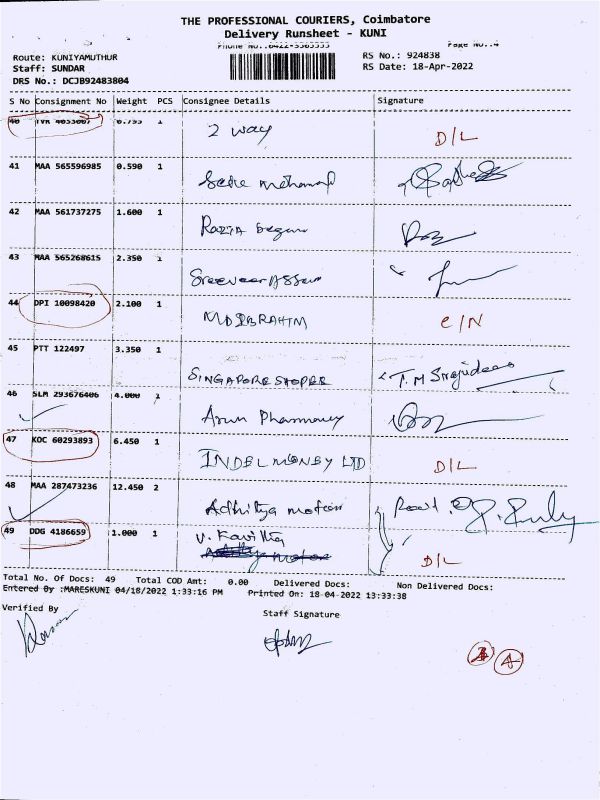 THE PROFESSIONAL COURIERS, Coimbatore
Delivery Runsheet - KUNI
Phone No.:0422-3363333 Page No.:4
Route: KUNIYAMUTHUR RS No.: 924838
Staff: SUNDAR RS Date: 18-Apr-2022
DRS No.: DCJB92483804
S No Consignment No Weight PCS Consignee Details Signature
40 TVR 4053007 0.795 1
2 way D/L
41 MAA 565596985 0.590 1
42 MAA 561737275 1.600 1
RAZIA Begum
43 MAA 565268615 2.350 1
44 DPI 10098420 2.100 1
MD IBRAHIM C/N
45 PTT 122497 3.350 1
SINGAPORE SHOPEE T.M Sirajudeen
46 SLM 293676406 4.000 1
Arun Pharmacy
47 KOC 60293893 6.450 1
INDEL MONEY LTD D/L
48 MAA 287473236 12.450 2
Adhitya motors
49 DDG 4186659 1.000 1
V. Kavitha
D/L
Total No. Of Docs: 49 Total COD Amt: 0.00 Delivered Docs: Non Delivered Docs:
Entered By :MARESKUNI 04/18/2022 1:33:16 PM Printed On: 18-04-2022 13:33:38
Verified By Staff Signature
4